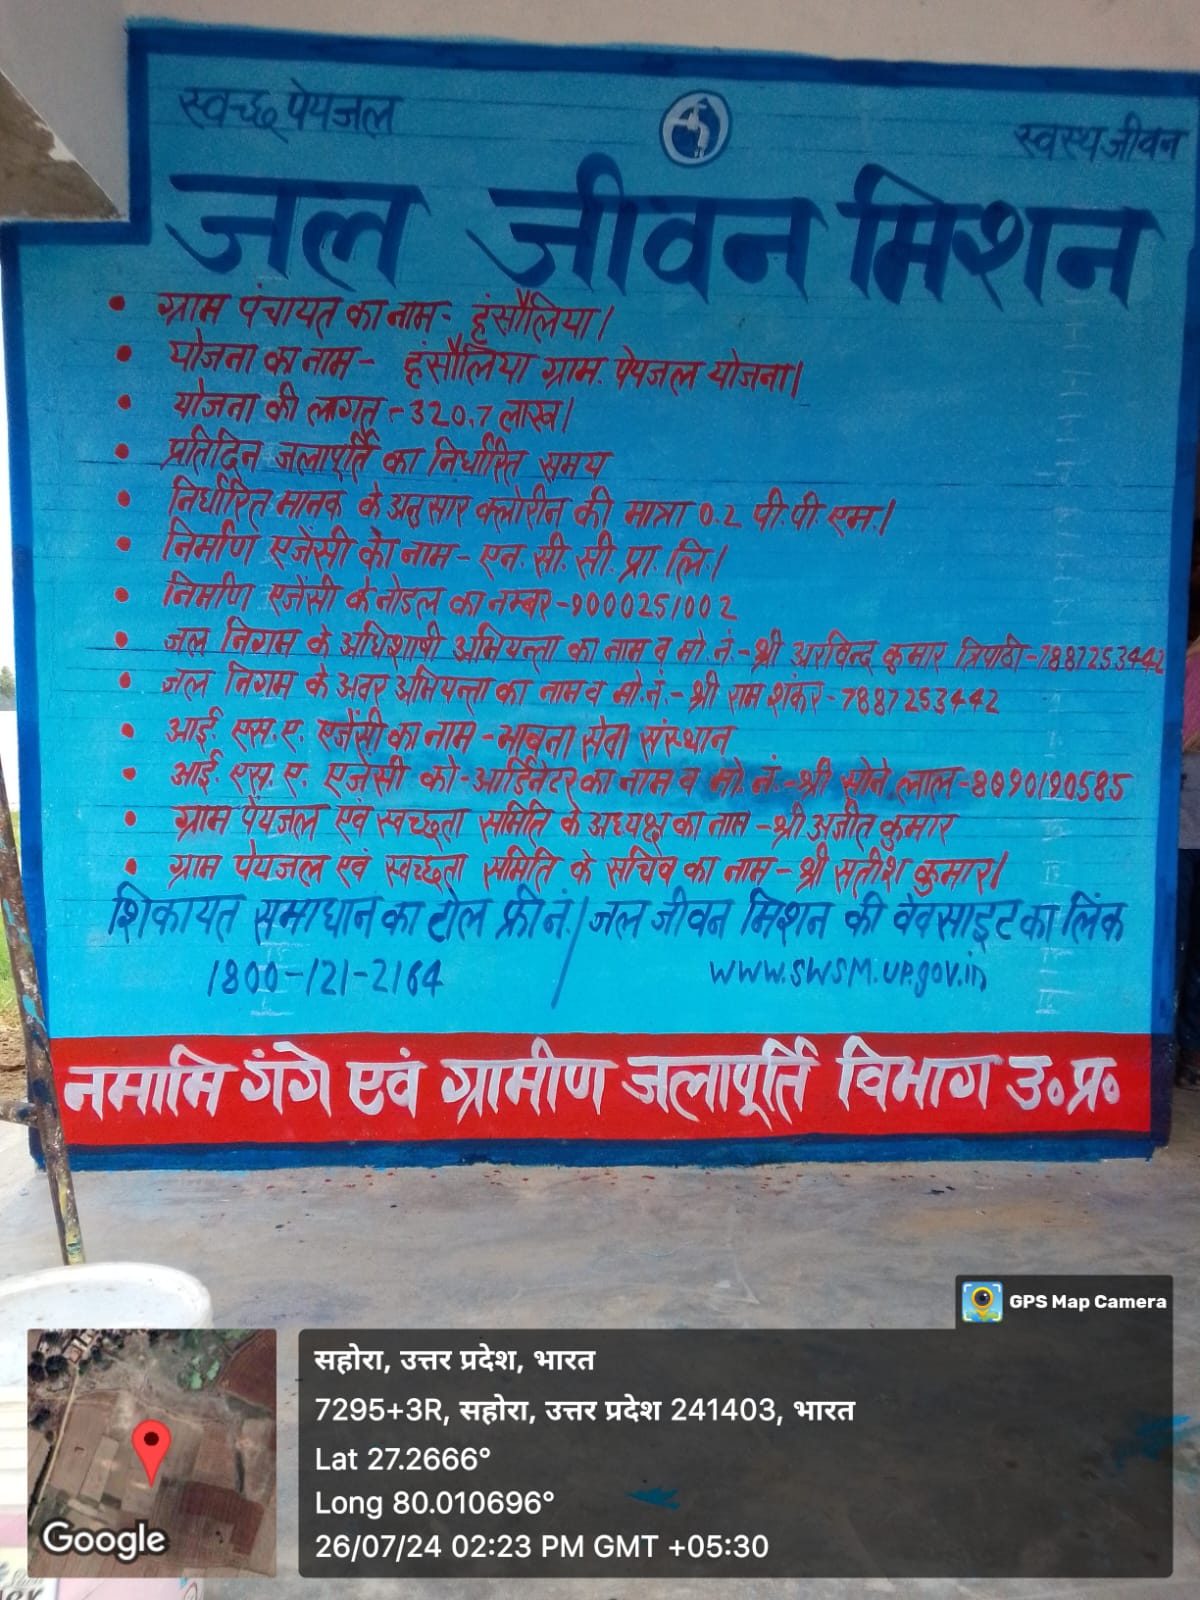 स्वच्छ पेयजल
स्वस्थ जीवन
जल जीवन मिशन
• ग्राम पंचायत का नाम- हंसौलिया।
• योजना का नाम- हंसौलिया ग्राम. पेयजल योजना।
• योजना की लागत -320.7 लाख।
• प्रतिदिन जलापूर्ति का निर्धारित समय
• निर्धारित मानक के अनुसार क्लोरीन की मात्रा 0.2 पी.पी. एम.।
• निर्माण एजेंसी को नाम- एन. सी. सी. प्रा. लि.।
• निर्माण एजेंसी के नोडल का नम्बर-9000251002
• जल निगम के अधिशाषी अभियन्ता का नाम व मो. नं.-श्री अरविन्द कुमार त्रिपाठी-7887253442
• जल निगम के अवर अभियन्ता का नाम व मो.नं.- श्री राम शंकर-7887253442
• आई. एस. ए. एजेंसी का नाम -भावना सेवा संस्थान
• आई. एस. ए. एजेंसी को-आर्डिनेटर का नाम व मो. नं.-श्री सोने लाल-8090190585
• ग्राम पेयजल एवं स्वच्छता समिति के अध्यक्ष का नाम -श्री अजीत कुमार
• ग्राम पेयजल एवं स्वच्छता समिति के सचिव का नाम- श्री सतीश कुमार।
शिकायत समाधान का टोल फ्री नं. / जल जीवन मिशन की वेवसाइट का लिंक
1800-121-2164 www.swsm.up.gov.in
नमामि गंगे एवं ग्रामीण जलापूर्ति विभाग उ॰ प्र॰
GPS Map Camera
सहोरा, उत्तर प्रदेश, भारत
7295+3R, सहोरा, उत्तर प्रदेश 241403, भारत
Lat 27.2666°
Long 80.010696°
26/07/24 02:23 PM GMT +05:30
Google